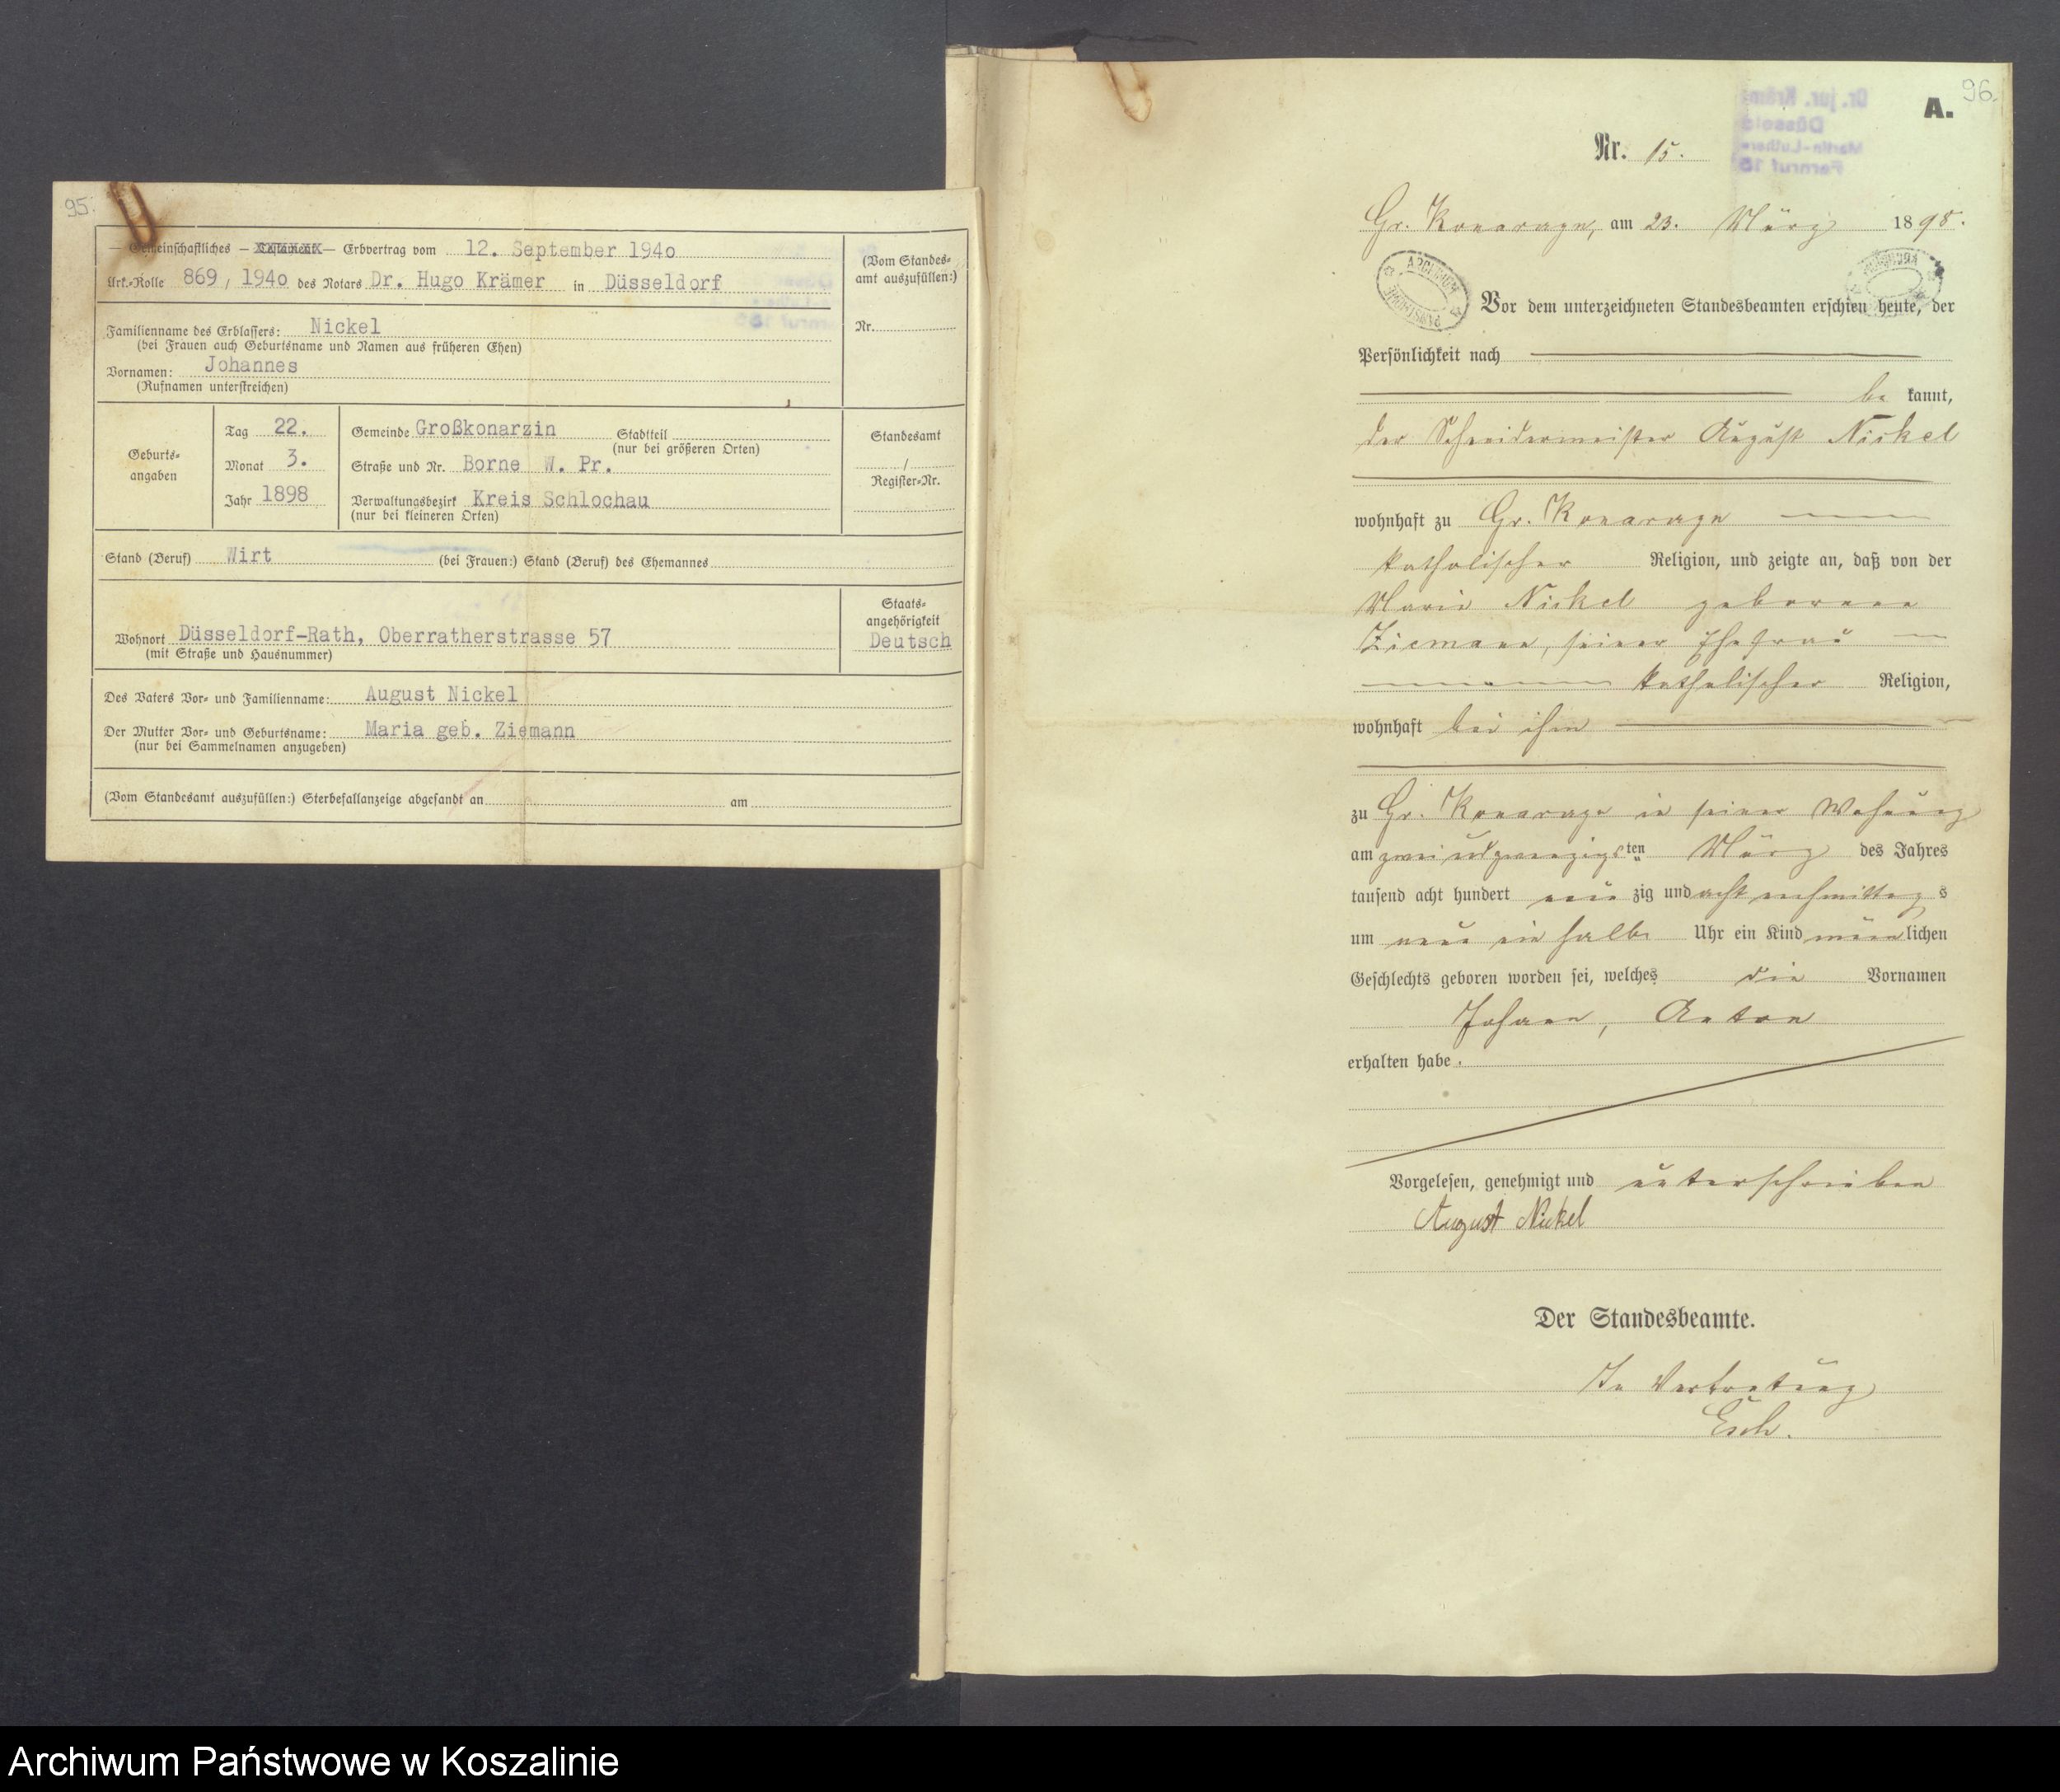 95.
— Gemeinschaftliches — Testament — Erbvertrag vom 12. September 194o
Urk.-Rolle 869, 194o des Notars Dr. Hugo Krämer in Düsseldorf
(Vom Standes-
amt auszufüllen:)
Familienname des Erblassers: Nickel
(bei Frauen auch Geburtsname und Namen aus früheren Ehen)
Nr.
Vornamen: Johannes
(Rufnamen unterstreichen)
Geburts-
angaben
Tag 22.
Monat 3.
Jahr 1898
Gemeinde Großkonarzin Stadtteil
(nur bei größeren Orten)
Straße und Nr. Borne W. Pr.
Verwaltungsbezirk Kreis Schlochau
(nur bei kleineren Orten)
Standesamt
/
Register-Nr.
Stand (Beruf) Wirt (bei Frauen:) Stand (Beruf) des Ehemannes
Wohnort Düsseldorf-Rath, Oberratherstrasse 57
(mit Straße und Hausnummer)
Staats-
angehörigkeit
Deutsch
Des Vaters Vor- und Familienname: August Nickel
Der Mutter Vor- und Geburtsname: Maria geb. Ziemann
(nur bei Sammelnamen anzugeben)
(Vom Standesamt auszufüllen:) Sterbefallanzeige abgesandt an am
96.
A.
Nr. 15.
Gr. Konarzyn, am 23. März 1898.
Vor dem unterzeichneten Standesbeamten erschien heute, der
Persönlichkeit nach
be kannt,
der Schneidermeister August Nickel
wohnhaft zu Gr. Konarzyn
katholischer Religion, und zeigte an, daß von der
Marie Nickel geborenen
Ziemann, seiner Ehefrau
katholischer Religion,
wohnhaft bei ihm
zu Gr. Konarzyn in seiner Wohnung
am zwei und zwanzigsten März des Jahres
tausend acht hundert neun zig und acht nachmittag s
um neun ein halb Uhr ein Kind männlichen
Geschlechts geboren worden sei, welches die Vornamen
Johann, Anton
erhalten habe.
Vorgelesen, genehmigt und unterschrieben
August Nickel
Der Standesbeamte.
In Vertretung
Esch.
Archiwum Państwowe w Koszalinie